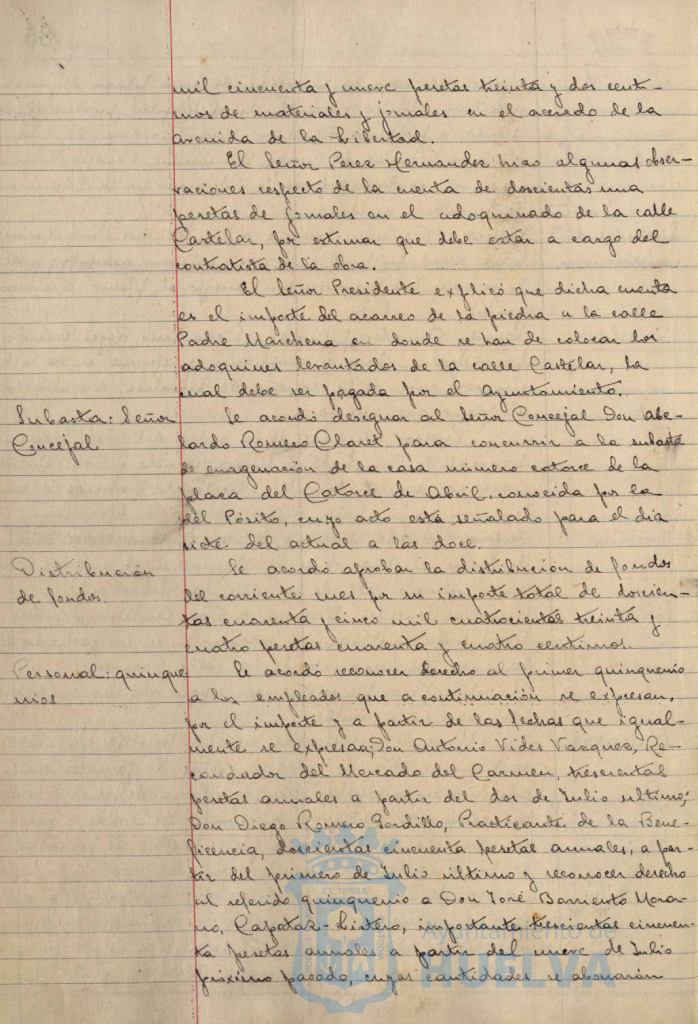 mil cincuenta y nueve pesetas treinta y dos centi-
mos de materiales y jornales en el acerado de la
Avenida de la Libertad.
El Señor Perez Hernandez hizo algunas obser-
vaciones respecto de la cuenta de doscientas una
pesetas de jornales en el adoquinado de la calle
Castelar, por estimar que debe estar a cargo del
contratista de la obra.
El Señor Presidente explicó que dicha cuenta
es el importe del acarreo de la piedra a la calle
Padre Marchena en donde se han de colocar los
adoquines levantados de la calle Castelar, la
cual debe ser pagada por el Ayuntamiento.
Subasta: Señor
Concejal
Se acordó designar al Señor Concejal Don Abe-
lardo Romero Claret para concurrir a la subasta
de enagenación de la casa número catorce de la
plaza del Catorce de Abril, conocida por la
del Pósito, cuyo acto está señalado para el dia
siete del actual a las doce.
Distribución
de fondos.
Se acordó aprobar la distribución de fondos
del corriente mes por su importe total de doscien-
tas cuarenta y cinco mil cuatrocientas treinta y
cuatro pesetas cuarenta y cuatro centimos.
Personal: quinque
nios
Se acordó reconocer derecho al primer quinquenio
a los empleados que a continuación se expresan,
por el importe y a partir de las fechas que igual-
mente se expresan; Don Antonio Vides Vazquez, Re-
caudador del Mercado del Carmen, trescientas
pesetas anuales a partir del dos de Julio ultimo;
Don Diego Romero Gordillo, Practicante de la Bene-
ficencia, doscientas cincuenta pesetas anuales, a par-
tir del primero de Julio último y reconocer derecho
al referido quinquenio a Don José Barriento Mora-
no, Capataz-Listero, importante trescientas cincuen-
ta pesetas anuales a partir del nueve de Julio
próximo pasado, cuyas cantidades se abonarán
Ayuntamiento de
HUELVA